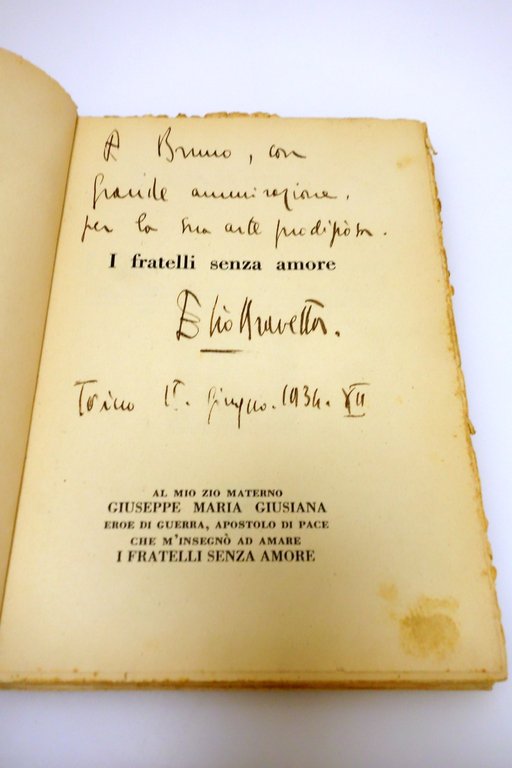 A Bruno, con
grande ammirazione,
per la sua arte prodigiosa.
I fratelli senza amore
Elio
Torino 1934. XII
AL MIO ZIO MATERNO
GIUSEPPE MARIA GIUSIANA
EROE DI GUERRA, APOSTOLO DI PACE
CHE M'INSEGNÒ AD AMARE
I FRATELLI SENZA AMORE